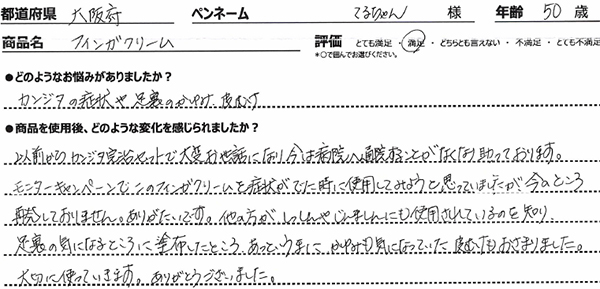 都道府県 大阪府 ペンネーム てるちゃん 様 年齢 50 歳
商品名 フィンガクリーム 評価 とても満足・満足・どちらとも言えない・不満足・とても不満足
*○で囲んでお選びください。
●どのようなお悩みがありましたか?
カンジタの症状や足裏のかゆみ、皮むけ
●商品を使用後、どのような変化を感じられましたか?
以前からカンジタ完治セットで大変お世話になり、今は病院へ通院することがなくなり助っております。
モニターキャンペーンでこのフィンガクリームを症状がでた時に使用してみようと思っていましたが、今のところ
再発しておりません。ありがたいです。他の方がしっしんやじんましんにも使用されているのを知り、
足裏の気になるところに塗布したところ、あっというまに、かゆみも気になっていた皮むけもおさまりました。
大切に使っていきます。ありがとうございました。